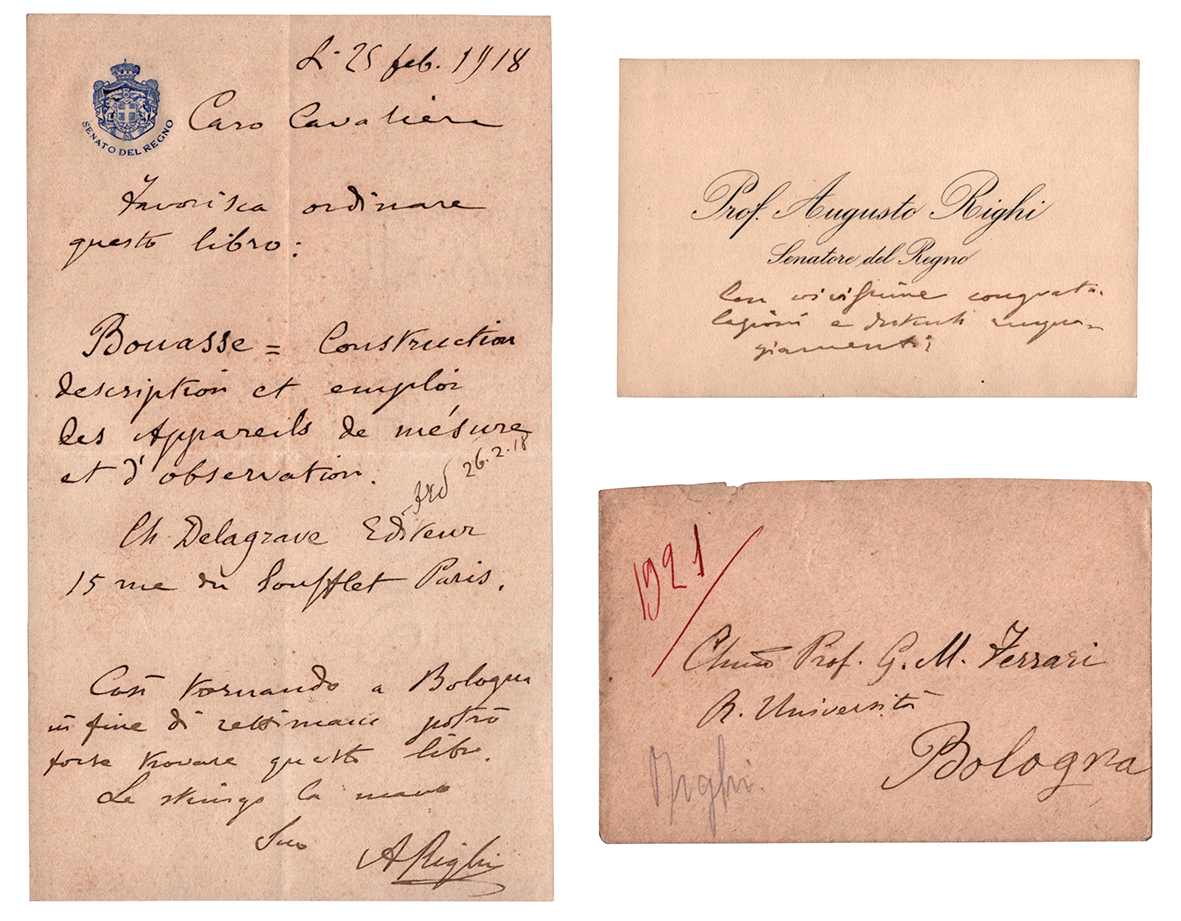 Lì 25 feb. 1918
SENATO DEL REGNO
Caro Cavaliere
Favorisca ordinare
questo libro:
Bouasse = Construction
description et emploi
des Appareils de mésure
et d'observation.
26.2.18
Ch. Delagrave Editeur
15 rue du Soufflet Paris.
Così tornando a Bologna
in fine di settimana potrò
forse trovare questo libro.
Le stringo la mano
Suo
A Righi
Prof. Augusto Righi
Senatore del Regno
Con vivissime congratu-
lazioni e distinti
1921
Chmo Prof. G. M. Ferrari
R. Università
Bologna
Righi.